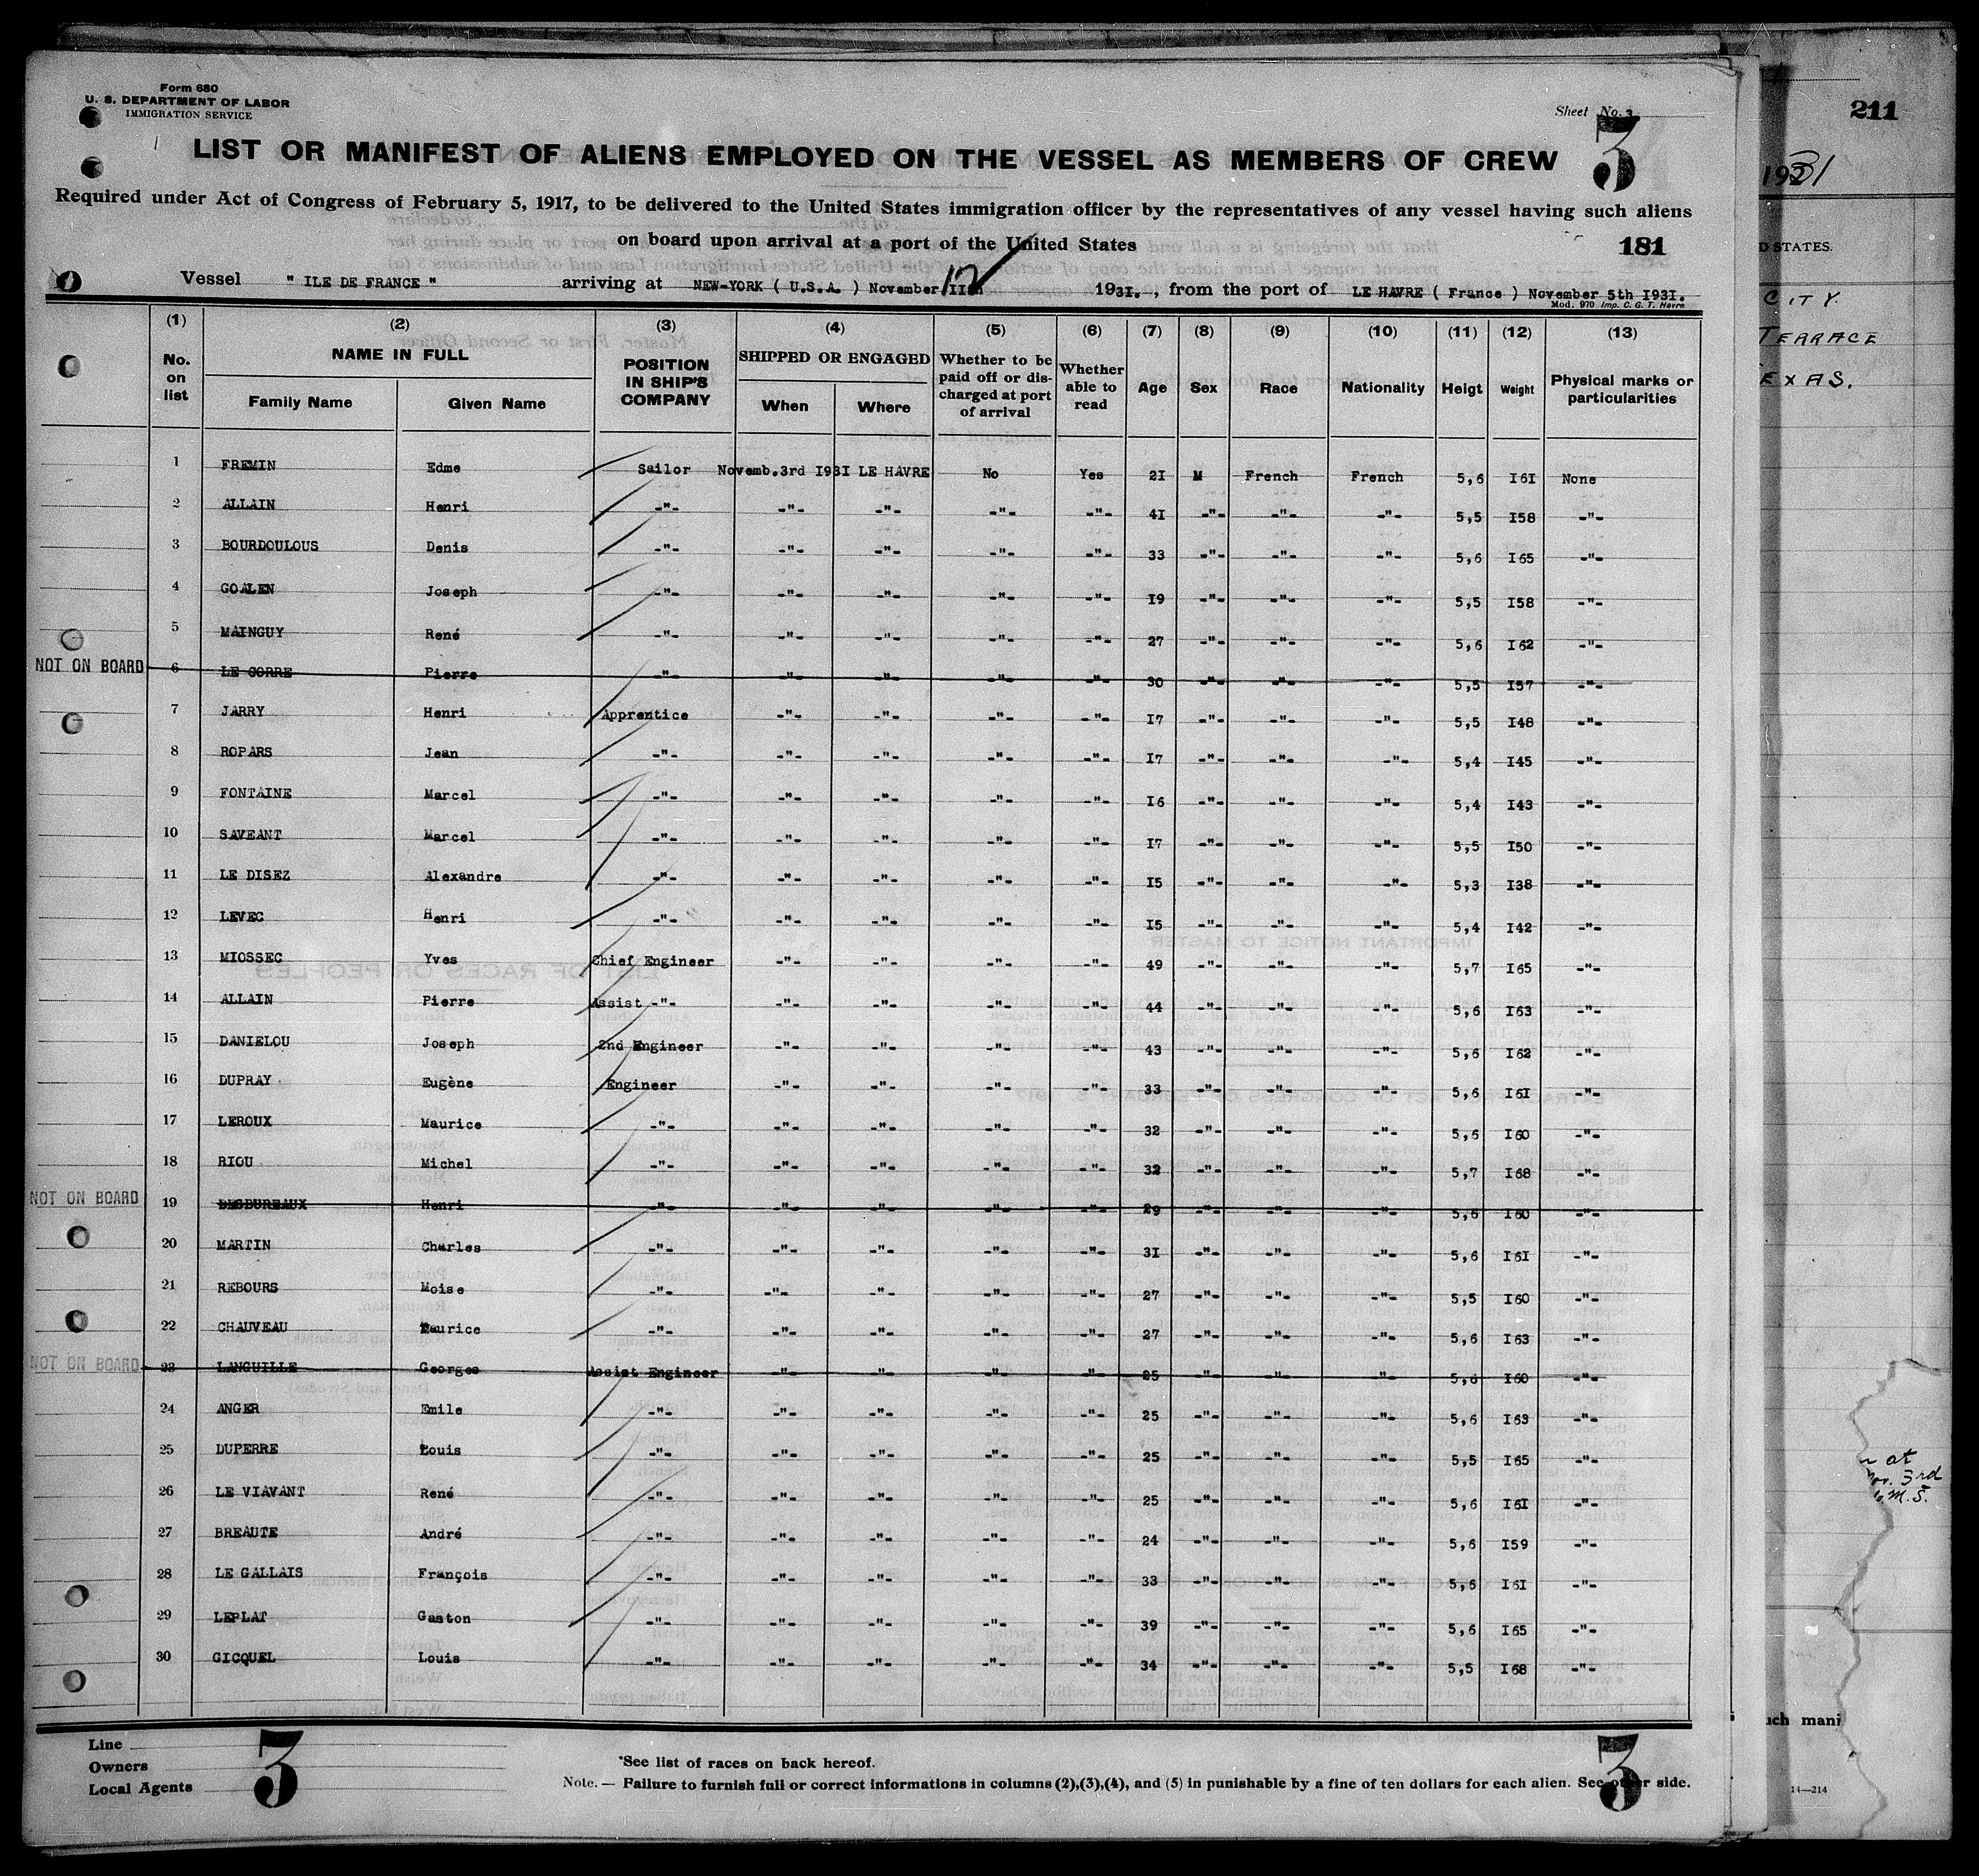 Form 680
U. S. DEPARTMENT OF LABOR
IMMIGRATION SERVICE
Sheet No. 3
3
LIST OR MANIFEST OF ALIENS EMPLOYED ON THE VESSEL AS MEMBERS OF CREW
Required under Act of Congress of February 5, 1917, to be delivered to the United States immigration officer by the representatives of any vessel having such aliens
on board upon arrival at a port of the United States
181
Vessel " ILE DE FRANCE " arriving at NEW-YORK ( U.S.A. ) November 12 1931. , from the port of LE HAVRE ( France ) November 5th I93I.
Mod. 970 Imp. C. G. T. Havre
(1) (2) (3) (4) (5) (6) (7) (8) (9) (10) (11) (12) (13)
No. on list NAME IN FULL Family Name Given Name POSITION IN SHIP'S COMPANY SHIPPED OR ENGAGED When Where Whether to be paid off or discharged at port of arrival Whether able to read Age Sex Race Nationality Heigt Weight Physical marks or particularities
1 FREMIN Edme Sailor Novemb.3rd I93I LE HAVRE No Yes 2I M French French 5,6 I6I None
2 ALLAIN Henri -"- -"- -"- -"- -"- 4I -"- -"- -"- 5,5 I58 -"-
3 BOURDOULOUS Denis -"- -"- -"- -"- -"- 33 -"- -"- -"- 5,6 I65 -"-
4 GOALEN Joseph -"- -"- -"- -"- -"- I9 -"- -"- -"- 5,5 I58 -"-
5 MAINGUY René -"- -"- -"- -"- -"- 27 -"- -"- -"- 5,6 I62 -"-
NOT ON BOARD 6 LE CORRE Pierre -"- -"- -"- -"- -"- 30 -"- -"- -"- 5,5 I57 -"-
7 JARRY Henri Apprentice -"- -"- -"- -"- I7 -"- -"- -"- 5,5 I48 -"-
8 ROPARS Jean -"- -"- -"- -"- -"- I7 -"- -"- -"- 5,4 I45 -"-
9 FONTAINE Marcel -"- -"- -"- -"- -"- I6 -"- -"- -"- 5,4 I43 -"-
10 SAVEANT Marcel -"- -"- -"- -"- -"- I7 -"- -"- -"- 5,5 I50 -"-
11 LE DISEZ Alexandre -"- -"- -"- -"- -"- I5 -"- -"- -"- 5,3 I38 -"-
12 LEVEC Henri -"- -"- -"- -"- -"- I5 -"- -"- -"- 5,4 I42 -"-
13 MIOSSEC Yves Chief Engineer -"- -"- -"- -"- 49 -"- -"- -"- 5,7 I65 -"-
14 ALLAIN Pierre Assist -"- -"- -"- -"- -"- 44 -"- -"- -"- 5,6 I63 -"-
15 DANIELOU Joseph 2nd Engineer -"- -"- -"- -"- 43 -"- -"- -"- 5,6 I62 -"-
16 DUPRAY Eugène Engineer -"- -"- -"- -"- 33 -"- -"- -"- 5,6 I6I -"-
17 LEROUX Maurice -"- -"- -"- -"- -"- 32 -"- -"- -"- 5,6 I60 -"-
18 RIOU Michel -"- -"- -"- -"- -"- 32 -"- -"- -"- 5,7 I68 -"-
NOT ON BOARD 19 DESBUREAUX Henri -"- -"- -"- -"- -"- 29 -"- -"- -"- 5,6 I60 -"-
20 MARTIN Charles -"- -"- -"- -"- -"- 3I -"- -"- -"- 5,6 I6I -"-
21 REBOURS Moise -"- -"- -"- -"- -"- 27 -"- -"- -"- 5,5 I60 -"-
22 CHAUVEAU Maurice -"- -"- -"- -"- -"- 27 -"- -"- -"- 5,6 I63 -"-
NOT ON BOARD 23 LANGUILLE Georges Assist Engineer -"- -"- -"- -"- 25 -"- -"- -"- 5,6 I60 -"-
24 ANGER Emile -"- -"- -"- -"- -"- 25 -"- -"- -"- 5,6 I63 -"-
25 DUPERRE Louis -"- -"- -"- -"- -"- 25 -"- -"- -"- 5,5 I65 -"-
26 LE VIAVANT René -"- -"- -"- -"- -"- 25 -"- -"- -"- 5,6 I6I -"-
27 BREAUTE André -"- -"- -"- -"- -"- 24 -"- -"- -"- 5,6 I59 -"-
28 LE GALLAIS François -"- -"- -"- -"- -"- 33 -"- -"- -"- 5,6 I6I -"-
29 LEPLAT Gaston -"- -"- -"- -"- -"- 39 -"- -"- -"- 5,6 I65 -"-
30 GICQUEL Louis -"- -"- -"- -"- -"- 34 -"- -"- -"- 5,5 I68 -"-
Line
Owners
Local Agents
3
*See list of races on back hereof.
Note. — Failure to furnish full or correct informations in columns (2),(3),(4), and (5) in punishable by a fine of ten dollars for each alien. See other side.
3
211
1931
D STATES.
CITY.
TERRACE
EXAS.
at
3rd
M.S.
uch mani
14—214